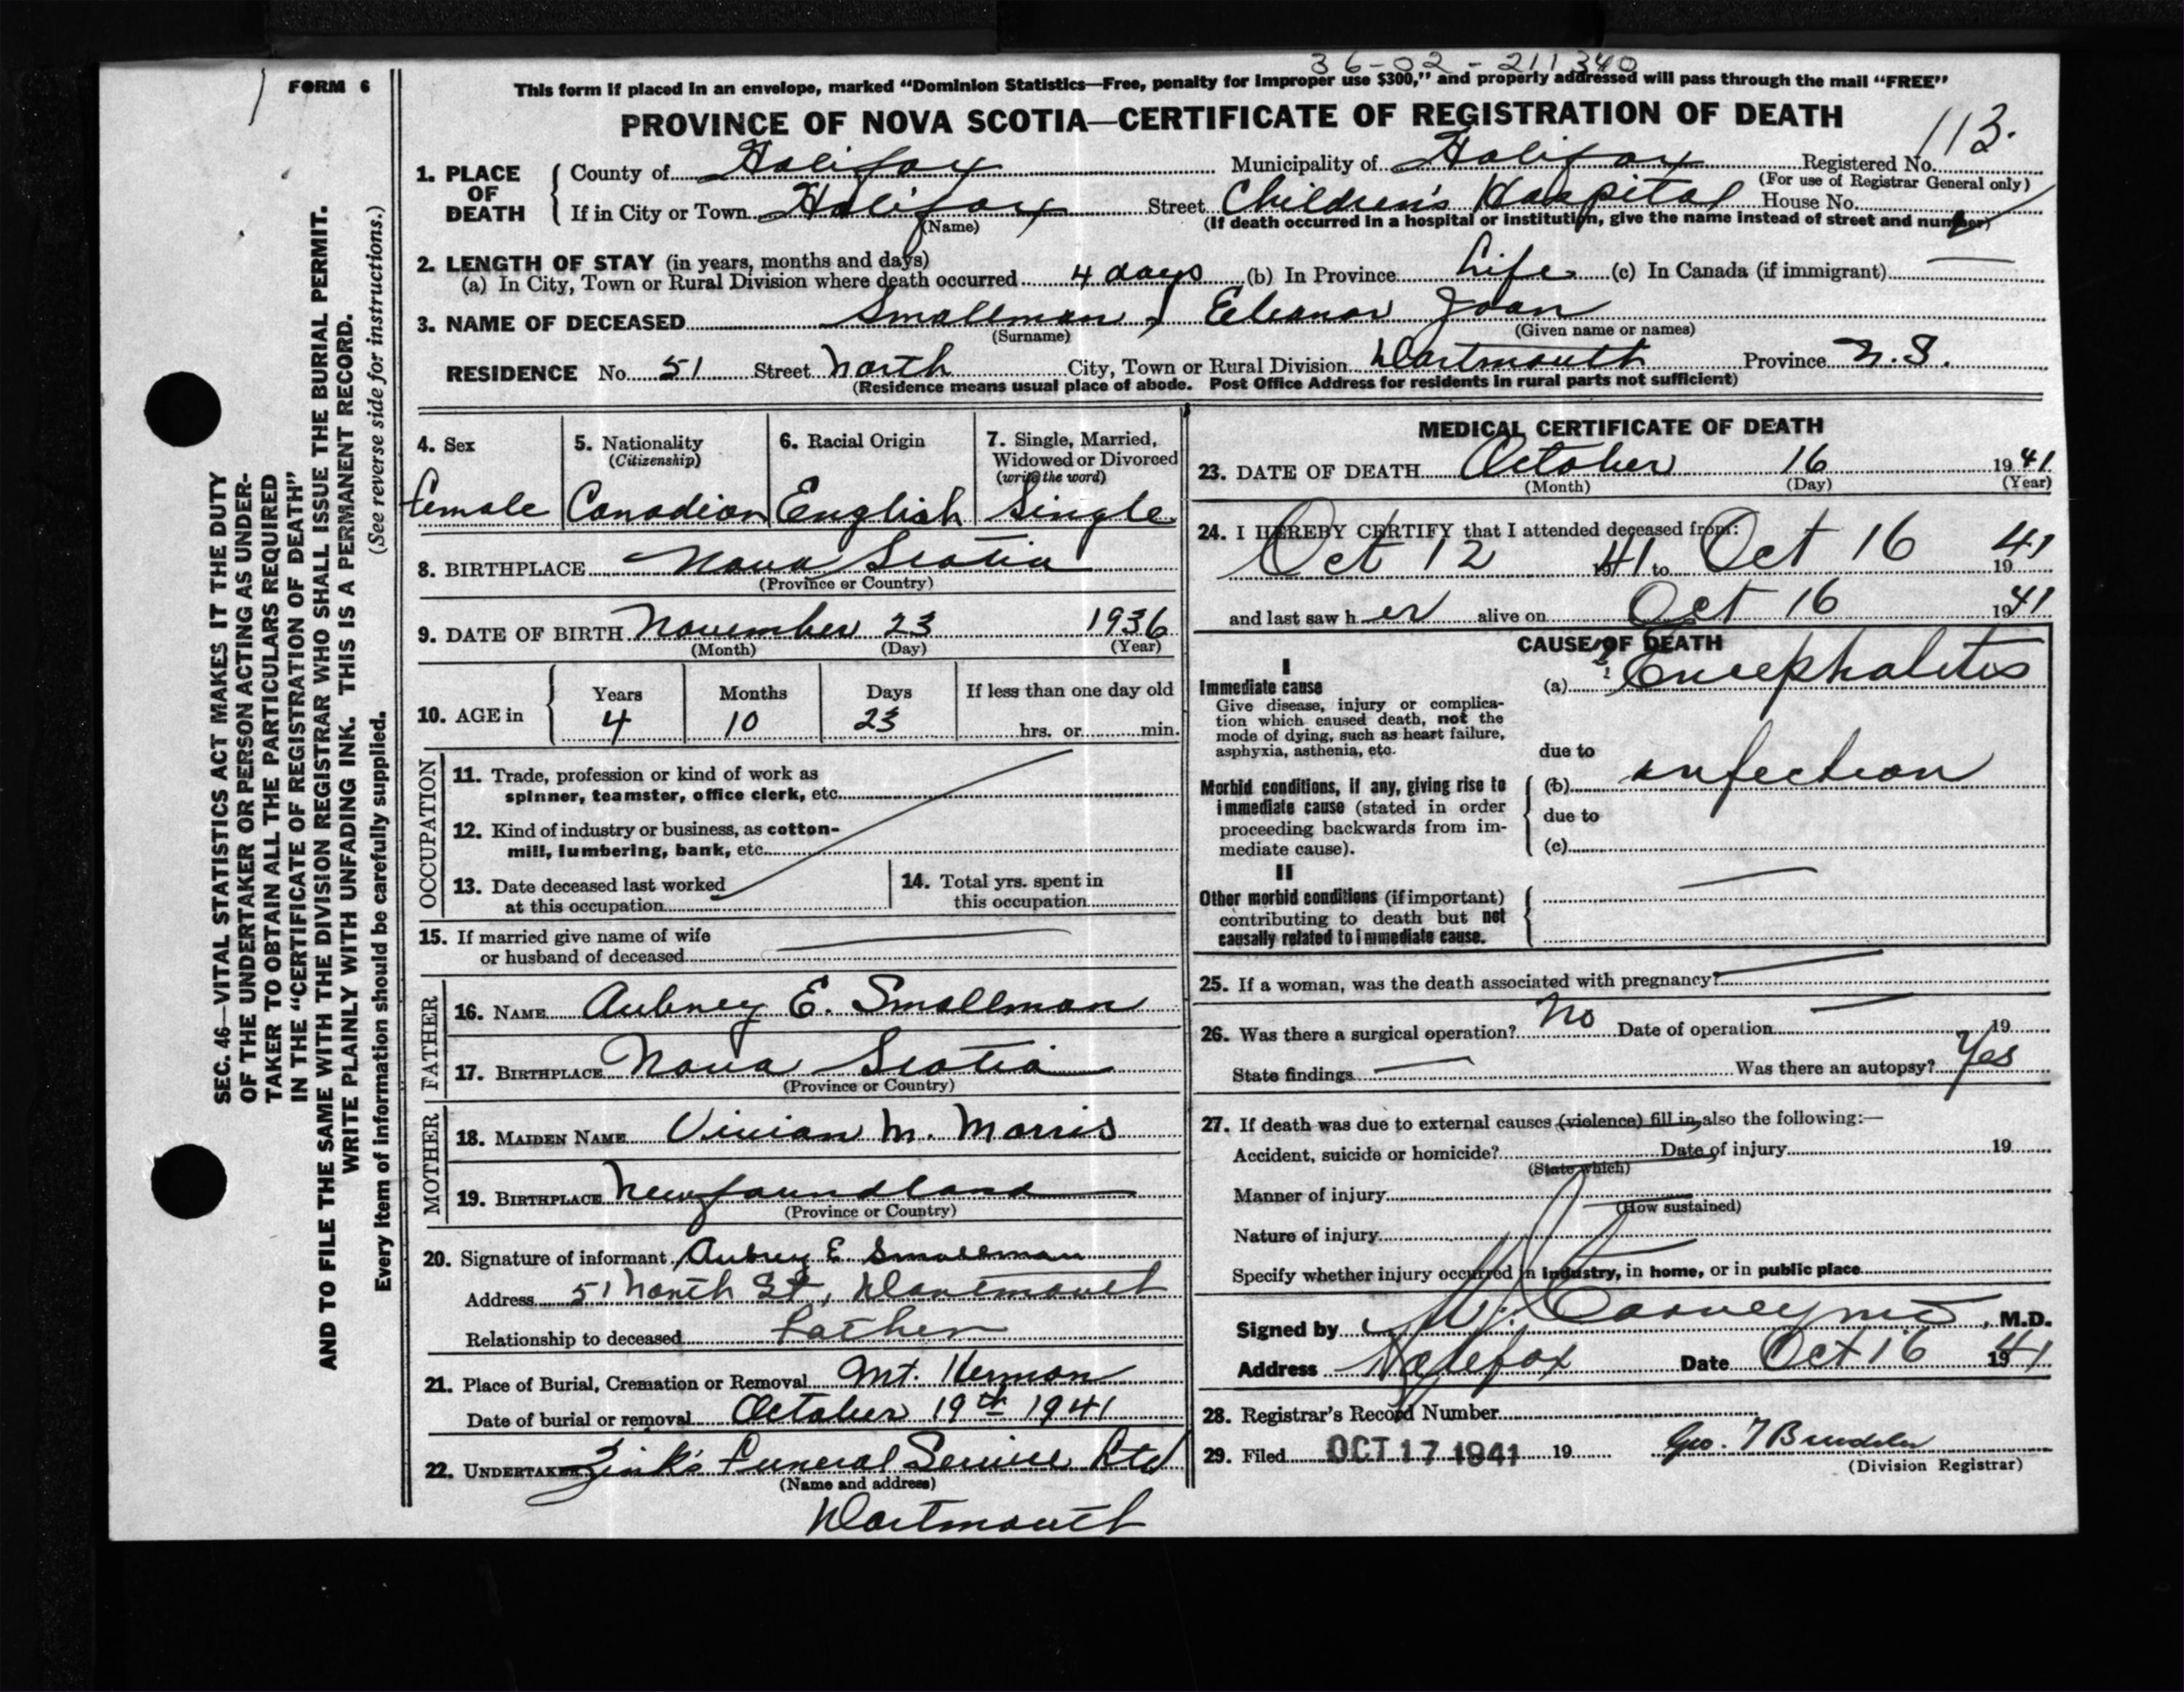 36-02-211340
FORM 6
This form if placed in an envelope, marked “Dominion Statistics—Free, penalty for improper use $300,” and properly addressed will pass through the mail “FREE”
PROVINCE OF NOVA SCOTIA—CERTIFICATE OF REGISTRATION OF DEATH
1. PLACE OF DEATH County of Halifax Municipality of Halifax Registered No. 113.
(For use of Registrar General only)
If in City or Town Halifax Street Children's Hospital House No.
(Name) (If death occurred in a hospital or institution, give the name instead of street and number)
2. LENGTH OF STAY (in years, months and days)
(a) In City, Town or Rural Division where death occurred 4 days (b) In Province Life (c) In Canada (if immigrant) —
3. NAME OF DECEASED Smallman, Eleanor Joan
(Surname) (Given name or names)
RESIDENCE No. 51 Street North City, Town or Rural Division Dartmouth Province N.S.
(Residence means usual place of abode. Post Office Address for residents in rural parts not sufficient)
4. Sex
female
5. Nationality
(Citizenship)
Canadian
6. Racial Origin
English
7. Single, Married,
Widowed or Divorced
(write the word)
Single
8. BIRTHPLACE Nova Scotia
(Province or Country)
9. DATE OF BIRTH November 23 1936
(Month) (Day) (Year)
10. AGE in
Years Months Days If less than one day old
4 10 23 hrs. or min.
OCCUPATION
11. Trade, profession or kind of work as
spinner, teamster, office clerk, etc.
12. Kind of industry or business, as cotton-
mill, lumbering, bank, etc.
13. Date deceased last worked
at this occupation
14. Total yrs. spent in
this occupation
15. If married give name of wife
or husband of deceased
FATHER
16. NAME Aubrey E. Smallman
17. BIRTHPLACE Nova Scotia
(Province or Country)
MOTHER
18. MAIDEN NAME Vivian M. Morris
19. BIRTHPLACE Newfoundland
(Province or Country)
20. Signature of informant Aubrey E Smallman
Address 51 North St, Dartmouth
Relationship to deceased Father
21. Place of Burial, Cremation or Removal Mt. Hermon
Date of burial or removal October 19th 1941
22. UNDERTAKER Zink's Funeral Service Ltd
(Name and address)
Dartmouth
MEDICAL CERTIFICATE OF DEATH
23. DATE OF DEATH October 16 1941
(Month) (Day) (Year)
24. I HEREBY CERTIFY that I attended deceased from:
Oct 12 1941 to Oct 16 1941
and last saw her alive on Oct 16 1941
CAUSE OF DEATH
I
Immediate cause
Give disease, injury or complica-
tion which caused death, not the
mode of dying, such as heart failure,
asphyxia, asthenia, etc.
(a) Encephalitis
due to
Morbid conditions, if any, giving rise to
immediate cause (stated in order
proceeding backwards from im-
mediate cause).
(b) infection
due to
(c)
II
Other morbid conditions (if important)
contributing to death but not
causally related to immediate cause.
25. If a woman, was the death associated with pregnancy?
26. Was there a surgical operation? No Date of operation 19
State findings — Was there an autopsy? Yes
27. If death was due to external causes (violence) fill in also the following:—
Accident, suicide or homicide? Date of injury 19
(State which)
Manner of injury
(How sustained)
Nature of injury
Specify whether injury occurred in industry, in home, or in public place
Signed by Carney MD, M.D.
Address Halifax Date Oct 16 1941
28. Registrar's Record Number
29. Filed OCT 17 1941 19 Geo. T
(Division Registrar)
SEC. 46—VITAL STATISTICS ACT MAKES IT THE DUTY
OF THE UNDERTAKER OR PERSON ACTING AS UNDER-
TAKER TO OBTAIN ALL THE PARTICULARS REQUIRED
IN THE “CERTIFICATE OF REGISTRATION OF DEATH”
AND TO FILE THE SAME WITH THE DIVISION REGISTRAR WHO SHALL ISSUE THE BURIAL PERMIT.
WRITE PLAINLY WITH UNFADING INK. THIS IS A PERMANENT RECORD.
(See reverse side for instructions.)
Every item of information should be carefully supplied.